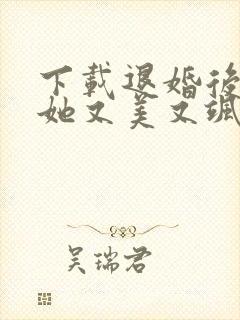 下載退婚後
她又美又颯
吴瑞君